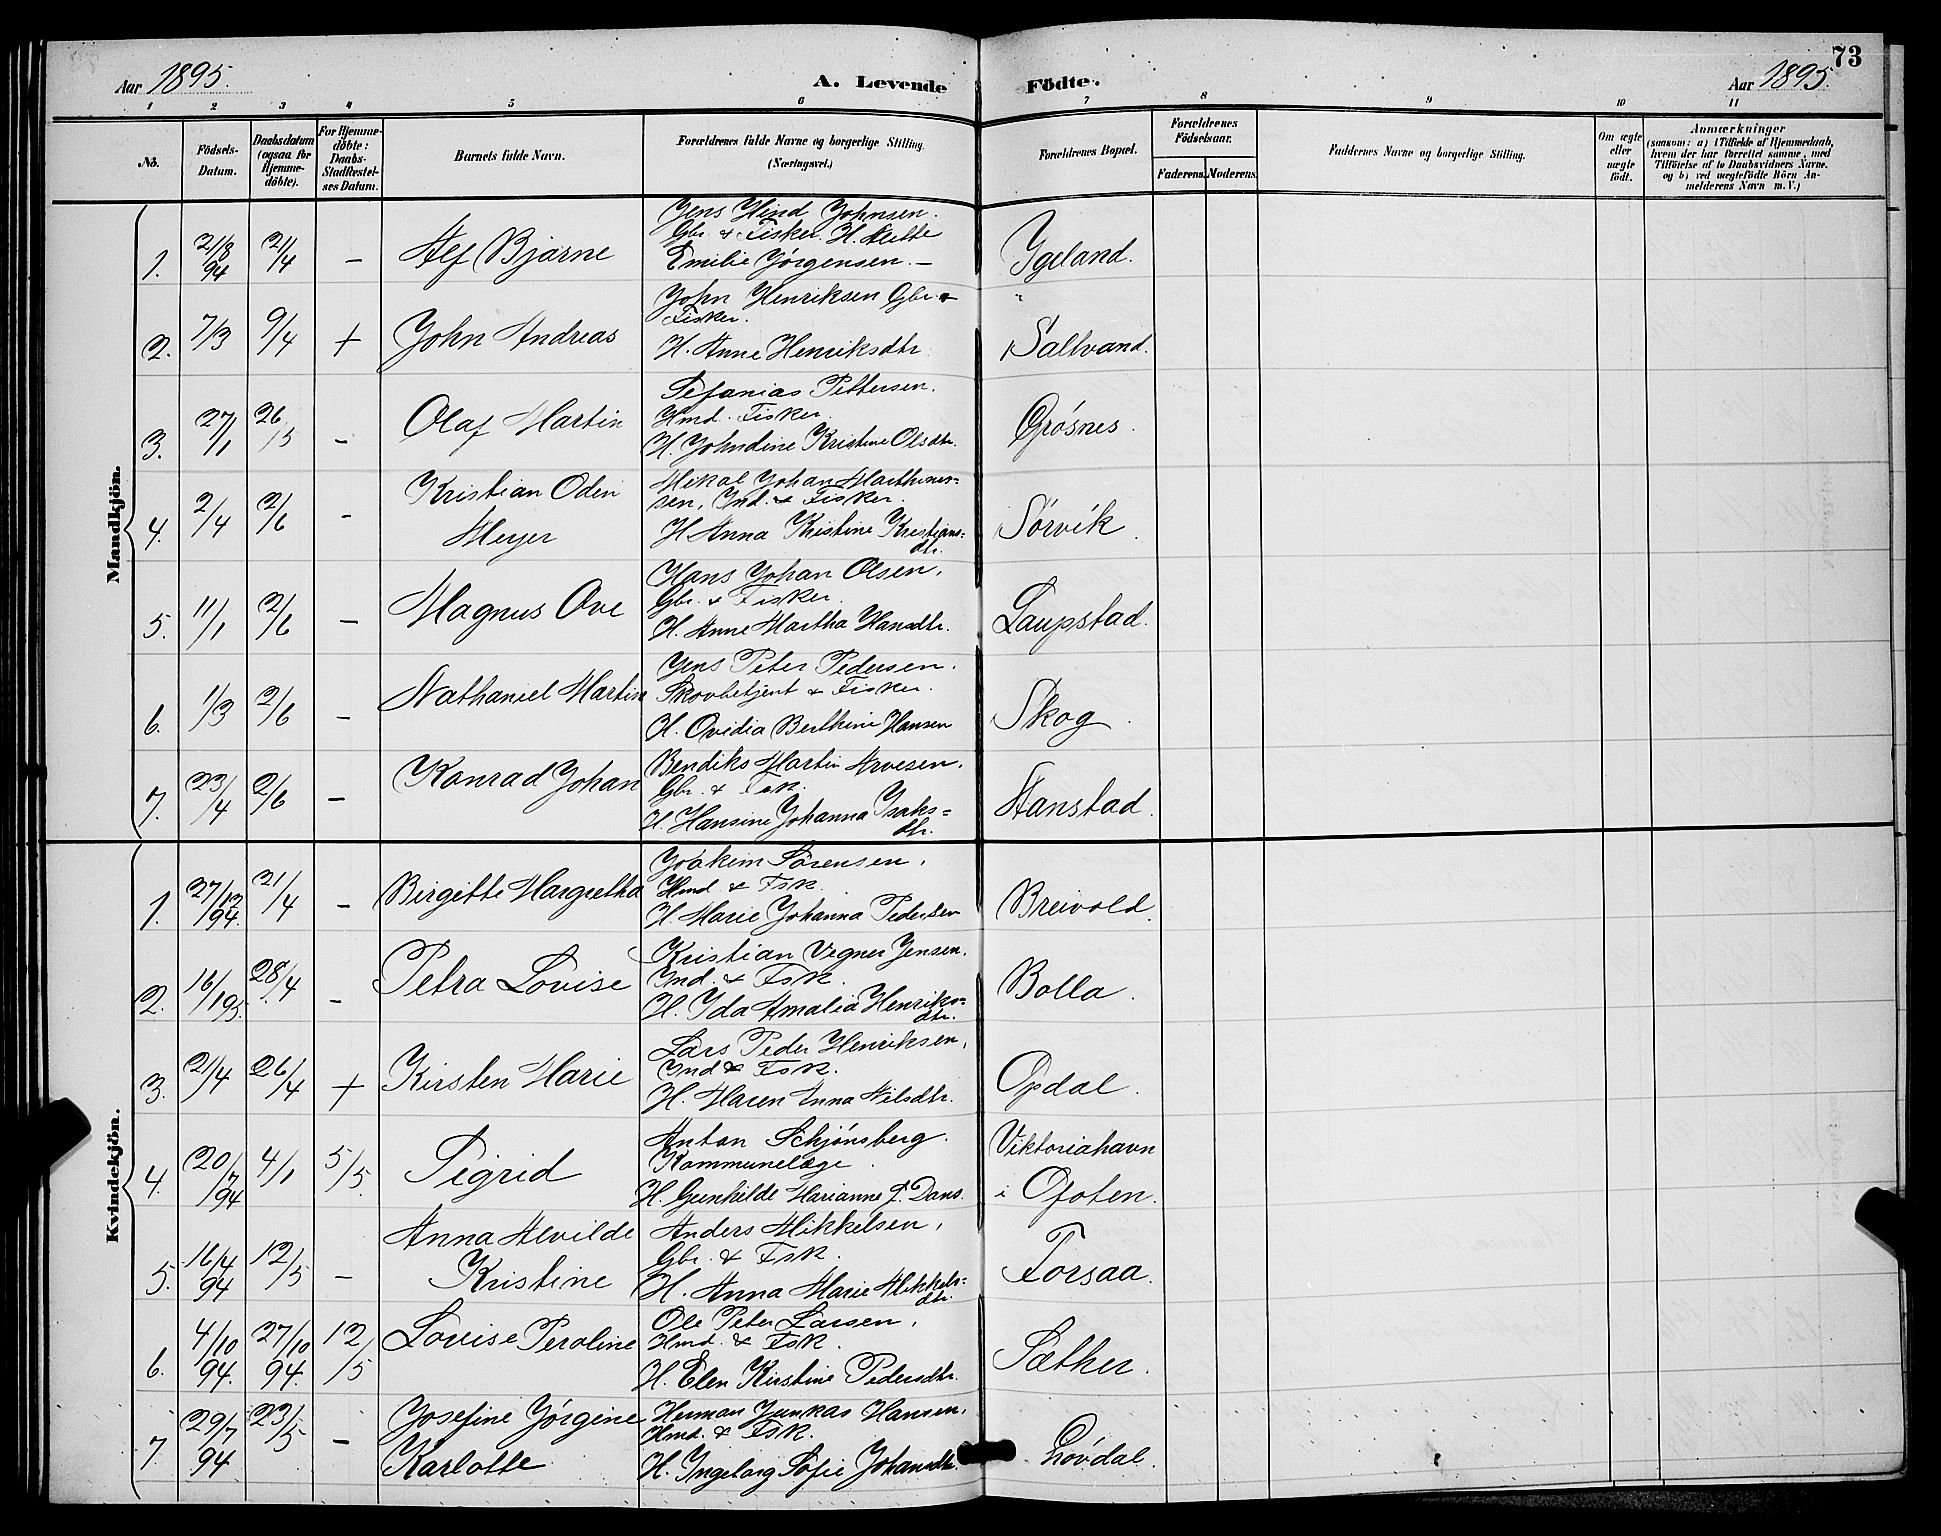 73
Aar 1895. A. Levende Födte. Aar 1895.
1 2 3 4 5 6 7 8 9 10 11
No. Födsels-Datum. Daabsdatum (ogsaa for Hjemme-döbte). For Hjemme-döbte: Daabs-Stadfæstel-ses Datum. Barnets fulde Navn. Forældrenes fulde Navne og borgerlige Stilling. (Næringsvei.) Forældrenes Bopæl. Forældrenes Födselsaar. Faderens. Moderens. Faddernes Navne og borgerlige Stilling. Om ægte eller uægte födt. Anmærkninger (saasom: a) i Tilfælde af Hjemmedaab, hvem der har forrettet samme, med Tilföielse af to Daabsvidners Navne. og b) ved uægtefödte Börn An-melderens Navn m. V.)
Mandkjön.
Jens Hind Johnsen.
Gbr. & Fisker. H.
1. 21/8 94 21/4 – Alf Bjarne Emilie Jörgensen.— Ygeland.
John Henriksen Gbr. &
Fisker.
2. 7/3 9/4 + John Andreas H. Anne Henriksdtr. Saltvand.
Sefanias Pettersen.
Hmd. Fisker.
3. 27/1 26/5 – Olaf Martin H. Johndine Kristine Olsdtr. Grösnes.
Kristian Oden Mikal Johan Marthines-
sen, Ind. & Fisker.
4. 2/4 2/6 – Meyer H Anna Kristine Kristians-
dtr. Sörvik.
Hans Johan Olsen,
Gbr. & Fisker.
5. 11/1 2/6 – Magnus Ove H. Anne Martha Hansdtr. Laupstad.
Jens Peter Pedersen.
Nathaniel Martin Skovbetjent & Fisker.
6. 1/3 2/6 – H. Ovidia Berthine Hansen Skog.
Bendiks Martin Arvesen.
Konrad Johan Gbr. & Fsk.
7. 23/4 2/6 – H. Hansine Johanna Isaks-
dtr. Hanstad.
Kvindekjön.
Joakim Sörensen,
Hmd & Fsk.
1. 27/12 94. 21/4 – Birgitte Margretha H. Marie Johanna Pedersen Breivold.
Kristian Vegner Jensen.
Ind. & Fsk.
2. 16/1 95. 28/4 – Petra Lovise H. Ida Amalia Henriks-
dtr. Bolla.
Lars Peder Henriksen,
Ind & Fsk.
3. 21/4 26/4 + Kirsten Marie H. Maren Anna Nilsdtr. Opdal.
Anton Schjönsberg. Viktoriahavn
Kommunelæge.
4. 20/7 94 4/1 5/5. Sigrid H. Gunhilde Marianne f. Dans. i Ofoten.
Anna Alvilde Anders Mikkelsen,
Gbr. & Fsk.
5. 16/4 94 12/5 – Kristine H. Anna Marie Mikkels-
dtr. Forsaa.
Ole Peter Larsen,
Hmd. & Fsk.
6. 4/10 94. 27/10 94. 12/5 Lovise Peroline H. Elen Kirstine Pedersdtr. Sæther.
Josefine Jörgine Herman Junkas Hansen,
Hmd. & Fsk.
7. 29/7 94 23/5 – Karlotte H. Ingeborg Sofie Johansdtr. Lövdal.